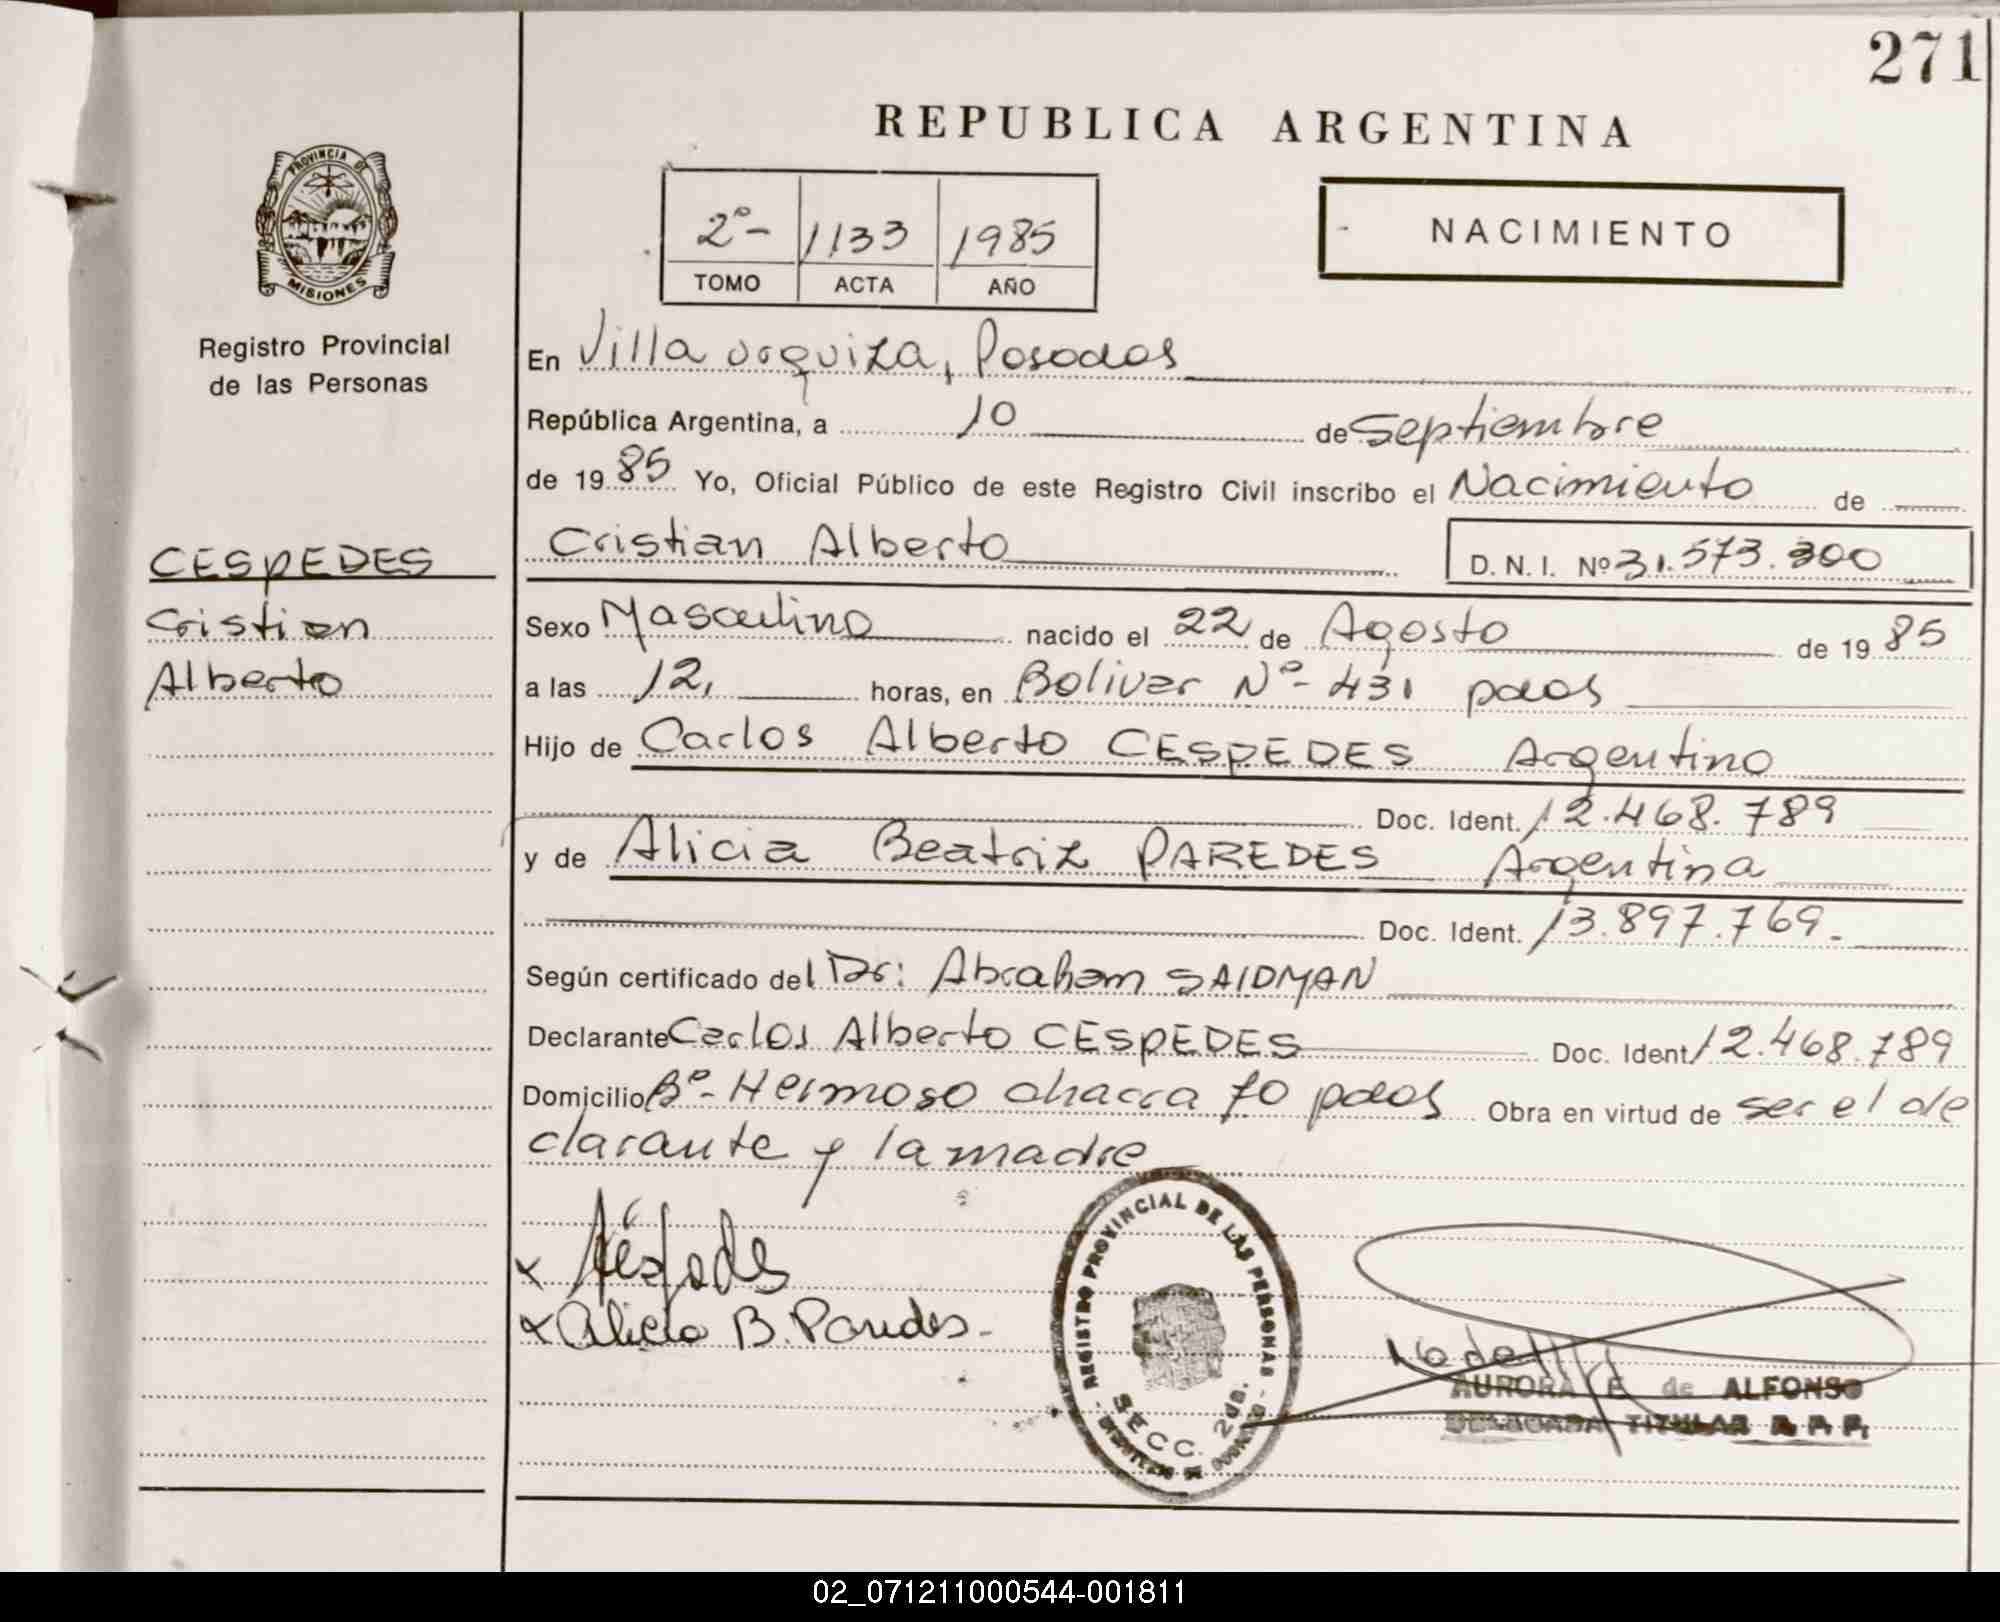 271
REPUBLICA ARGENTINA
PROVINCIA DE
MISIONES
2º- 1133 1985
TOMO ACTA AÑO
NACIMIENTO
Registro Provincial
de las Personas
En Villa urquiza, Posadas
República Argentina, a 10 de Septiembre
de 19 85 Yo, Oficial Público de este Registro Civil inscribo el Nacimiento de
Cristian Alberto
D. N. I. Nº 31.573.300
CESPEDES
Cristian
Alberto
Sexo Masculino nacido el 22 de Agosto de 19 85
a las 12, horas, en Bolivar Nº- 431 pdas
Hijo de Carlos Alberto CESPEDES Argentino
Doc. Ident. 12.468.789
y de Alicia Beatriz PAREDES Argentina
Doc. Ident. 13.897.769.-
Según certificado del Dr: Abraham SAIDMAN
Declarante Carlos Alberto CESPEDES Doc. Ident. 12.468.789
Domicilio Bº- Hermoso chacra 70 pdas Obra en virtud de ser el de
clarante y la madre
x
x Alicia B. Paredes.-
REGISTRO PROVINCIAL DE LAS PERSONAS
SECC. 2da.
AURORA E de ALFONSO
DELEGADA TITULAR R. P. P.
02_071211000544-001811